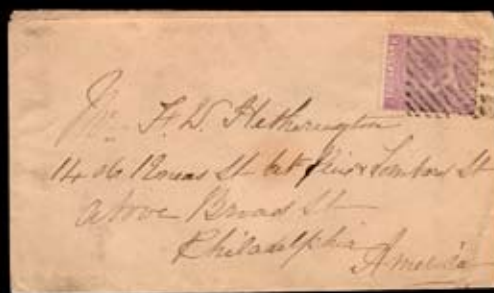 Mr F. W. Hetherington
1406 St bet Pine & Lombard St
above Broad St
Philadelphia
America